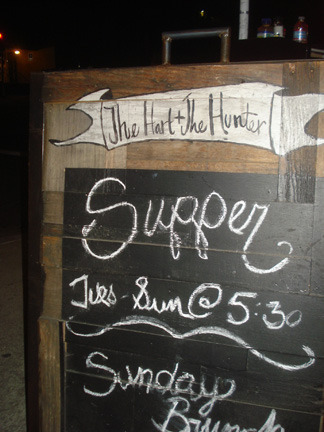 The Hart + The Hunter
Supper
Tues-Sun @ 5:30
Sunday
Brunch